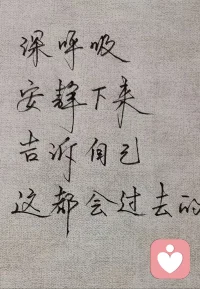 深呼吸
安静下来
吉诉自己
这都会过去的